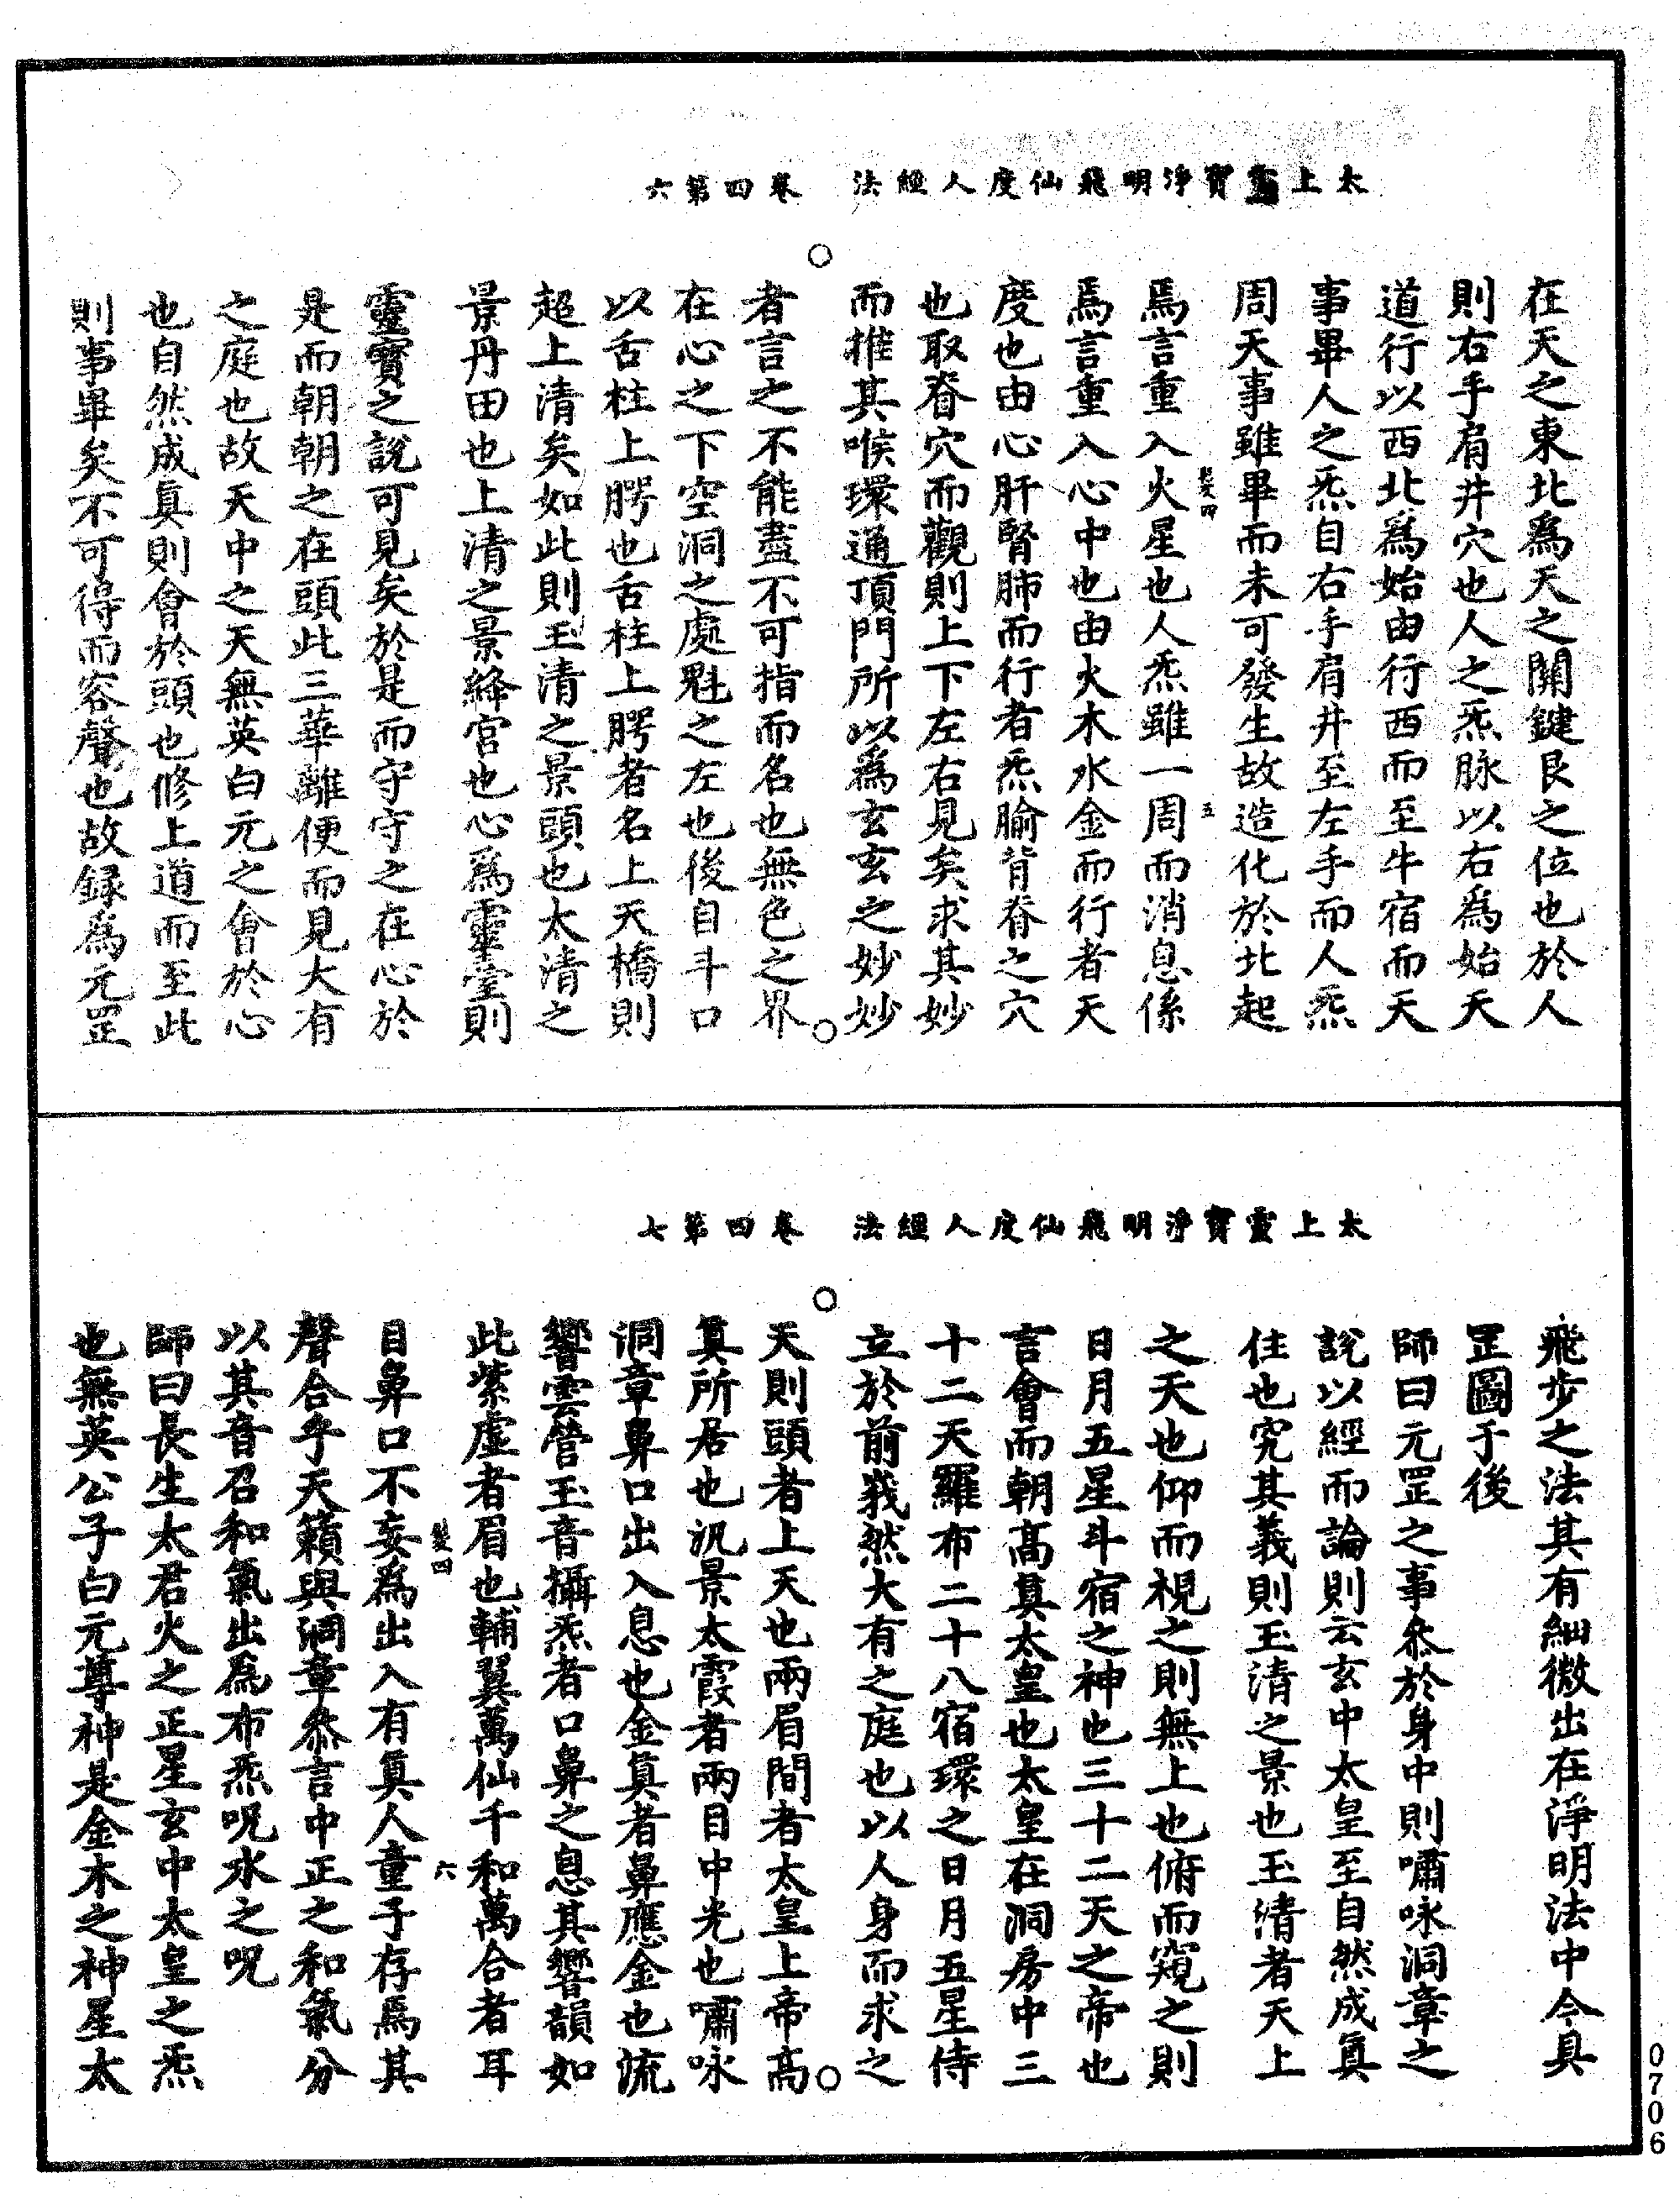 太上靈寶淨明飛仙度人經法　卷四第六
在天之東北爲天之關鍵艮之位也於人
則右手肩井穴也人之炁脉以右爲始天
道行以西北爲始由行西而至牛宿而天
事畢人之炁自右手肩井至左手而人炁
周天事雖畢而未可發生故造化於北起
焉言重入火星也人炁雖一周而消息係
焉言重入心中也由火木水金而行者天
度也由心肝腎肺而行者炁腧背脊之穴
也取脊穴而觀則上下左右見矣求其妙
而推其喉環通頂門所以爲玄玄之妙妙
者言之不能盡不可指而名也無色之界
在心之下空洞之處魁之左也後自斗口
以舌柱上腭也舌柱上腭者名上天橋則
超上清矣如此則玉清之景頭也太清之
景丹田也上清之景絳宮也心爲靈臺則
靈寶之說可見矣於是而守守之在心於
是而朝朝之在頭此三華離便而見大有
之庭也故天中之天無英白元之會於心
也自然成真則會於頭也修上道而至此
則事畢矣不可得而容聲也故録爲元罡
太上靈寶淨明飛仙度人經法　卷四第七
飛步之法其有細微出在淨明法中今具
罡圖于後
師曰元罡之事叅於身中則嘯咏洞章之
說以經而論則云玄中太皇至自然成眞
住也究其義則玉清之景也玉清者天上
之天也仰而視之則無上也俯而窺之則
日月五星斗宿之神也三十二天之帝也
言會而朝高眞太皇也太皇在洞房中三
十二天羅布二十八宿環之日月五星侍
立於前峩然大有之庭也以人身而求之
天則頭者上天也兩眉間者太皇上帝高
眞所居也汎景太霞者兩目中光也嘯咏
洞章鼻口出入息也金眞者鼻應金也流
響雲營玉音攝炁者口鼻之息其響韻如
此紫虛者眉也輔翼萬仙千和萬合者耳
目鼻口不妄爲出入有眞人童子存焉其
聲合乎天籟與洞章叅言中正之和氣分
以其音召和氣出爲布炁呪水之呪
師曰長生太君火之正星玄中太皇之炁
也無英公子白元尊神是金木之神星太
0706